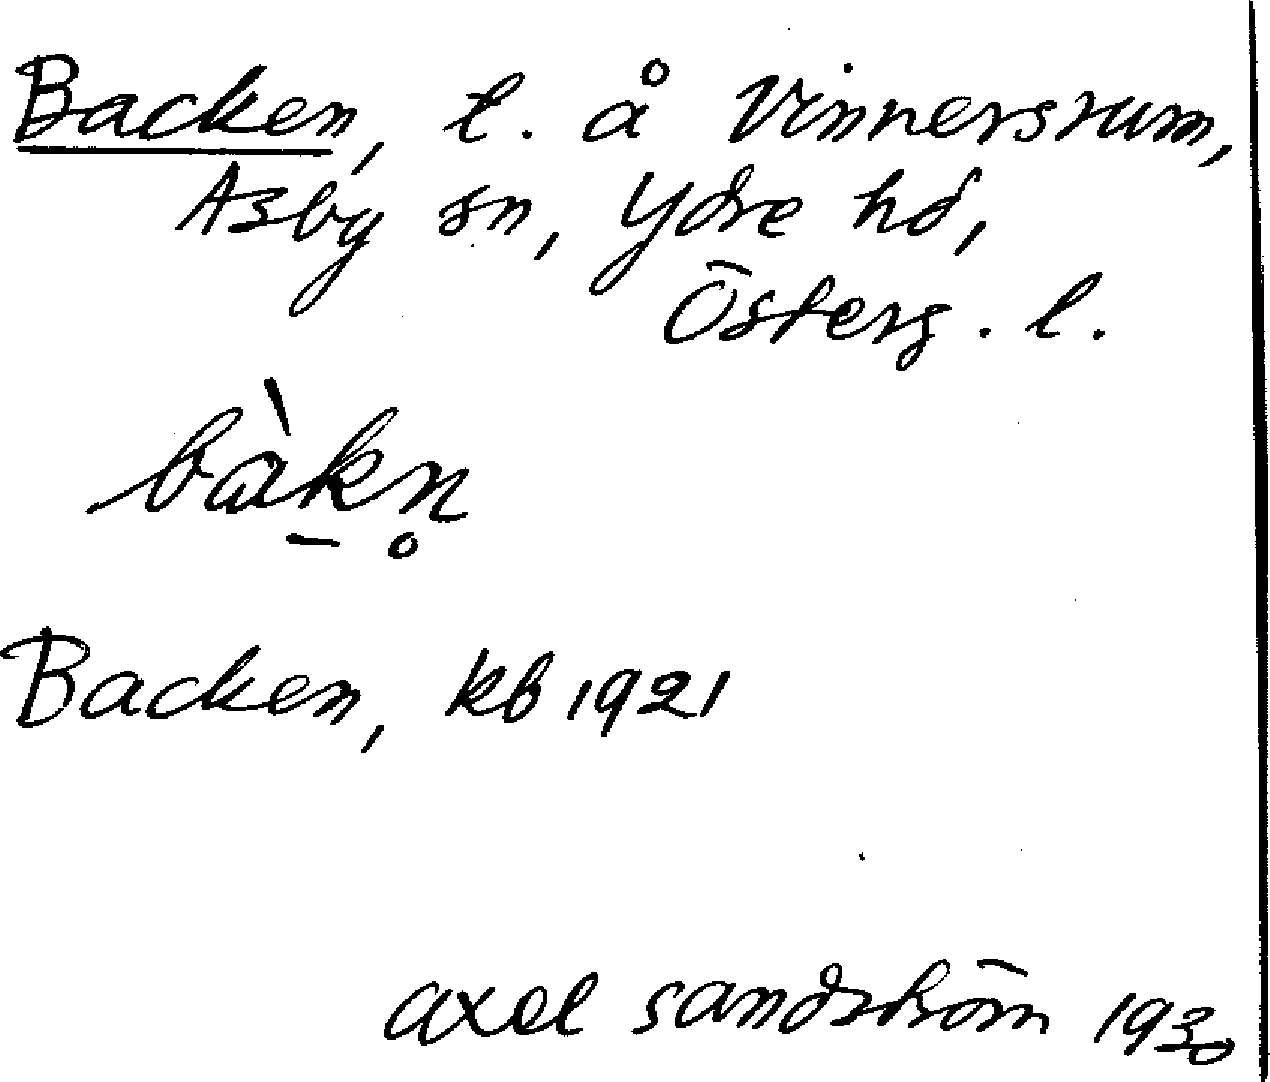 Backen, t. å Vinnersrum,
Asby sn, Ydre hd,
Österg. l.
bàk̠n̥
Backen, kb 1921
axel sandström 1930